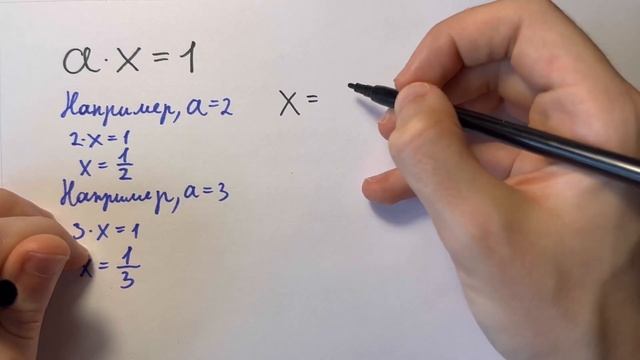 a · x = 1
Например, a = 2
2 · x = 1
x = 1/2
Например, a = 3
3 · x = 1
x = 1/3
x =